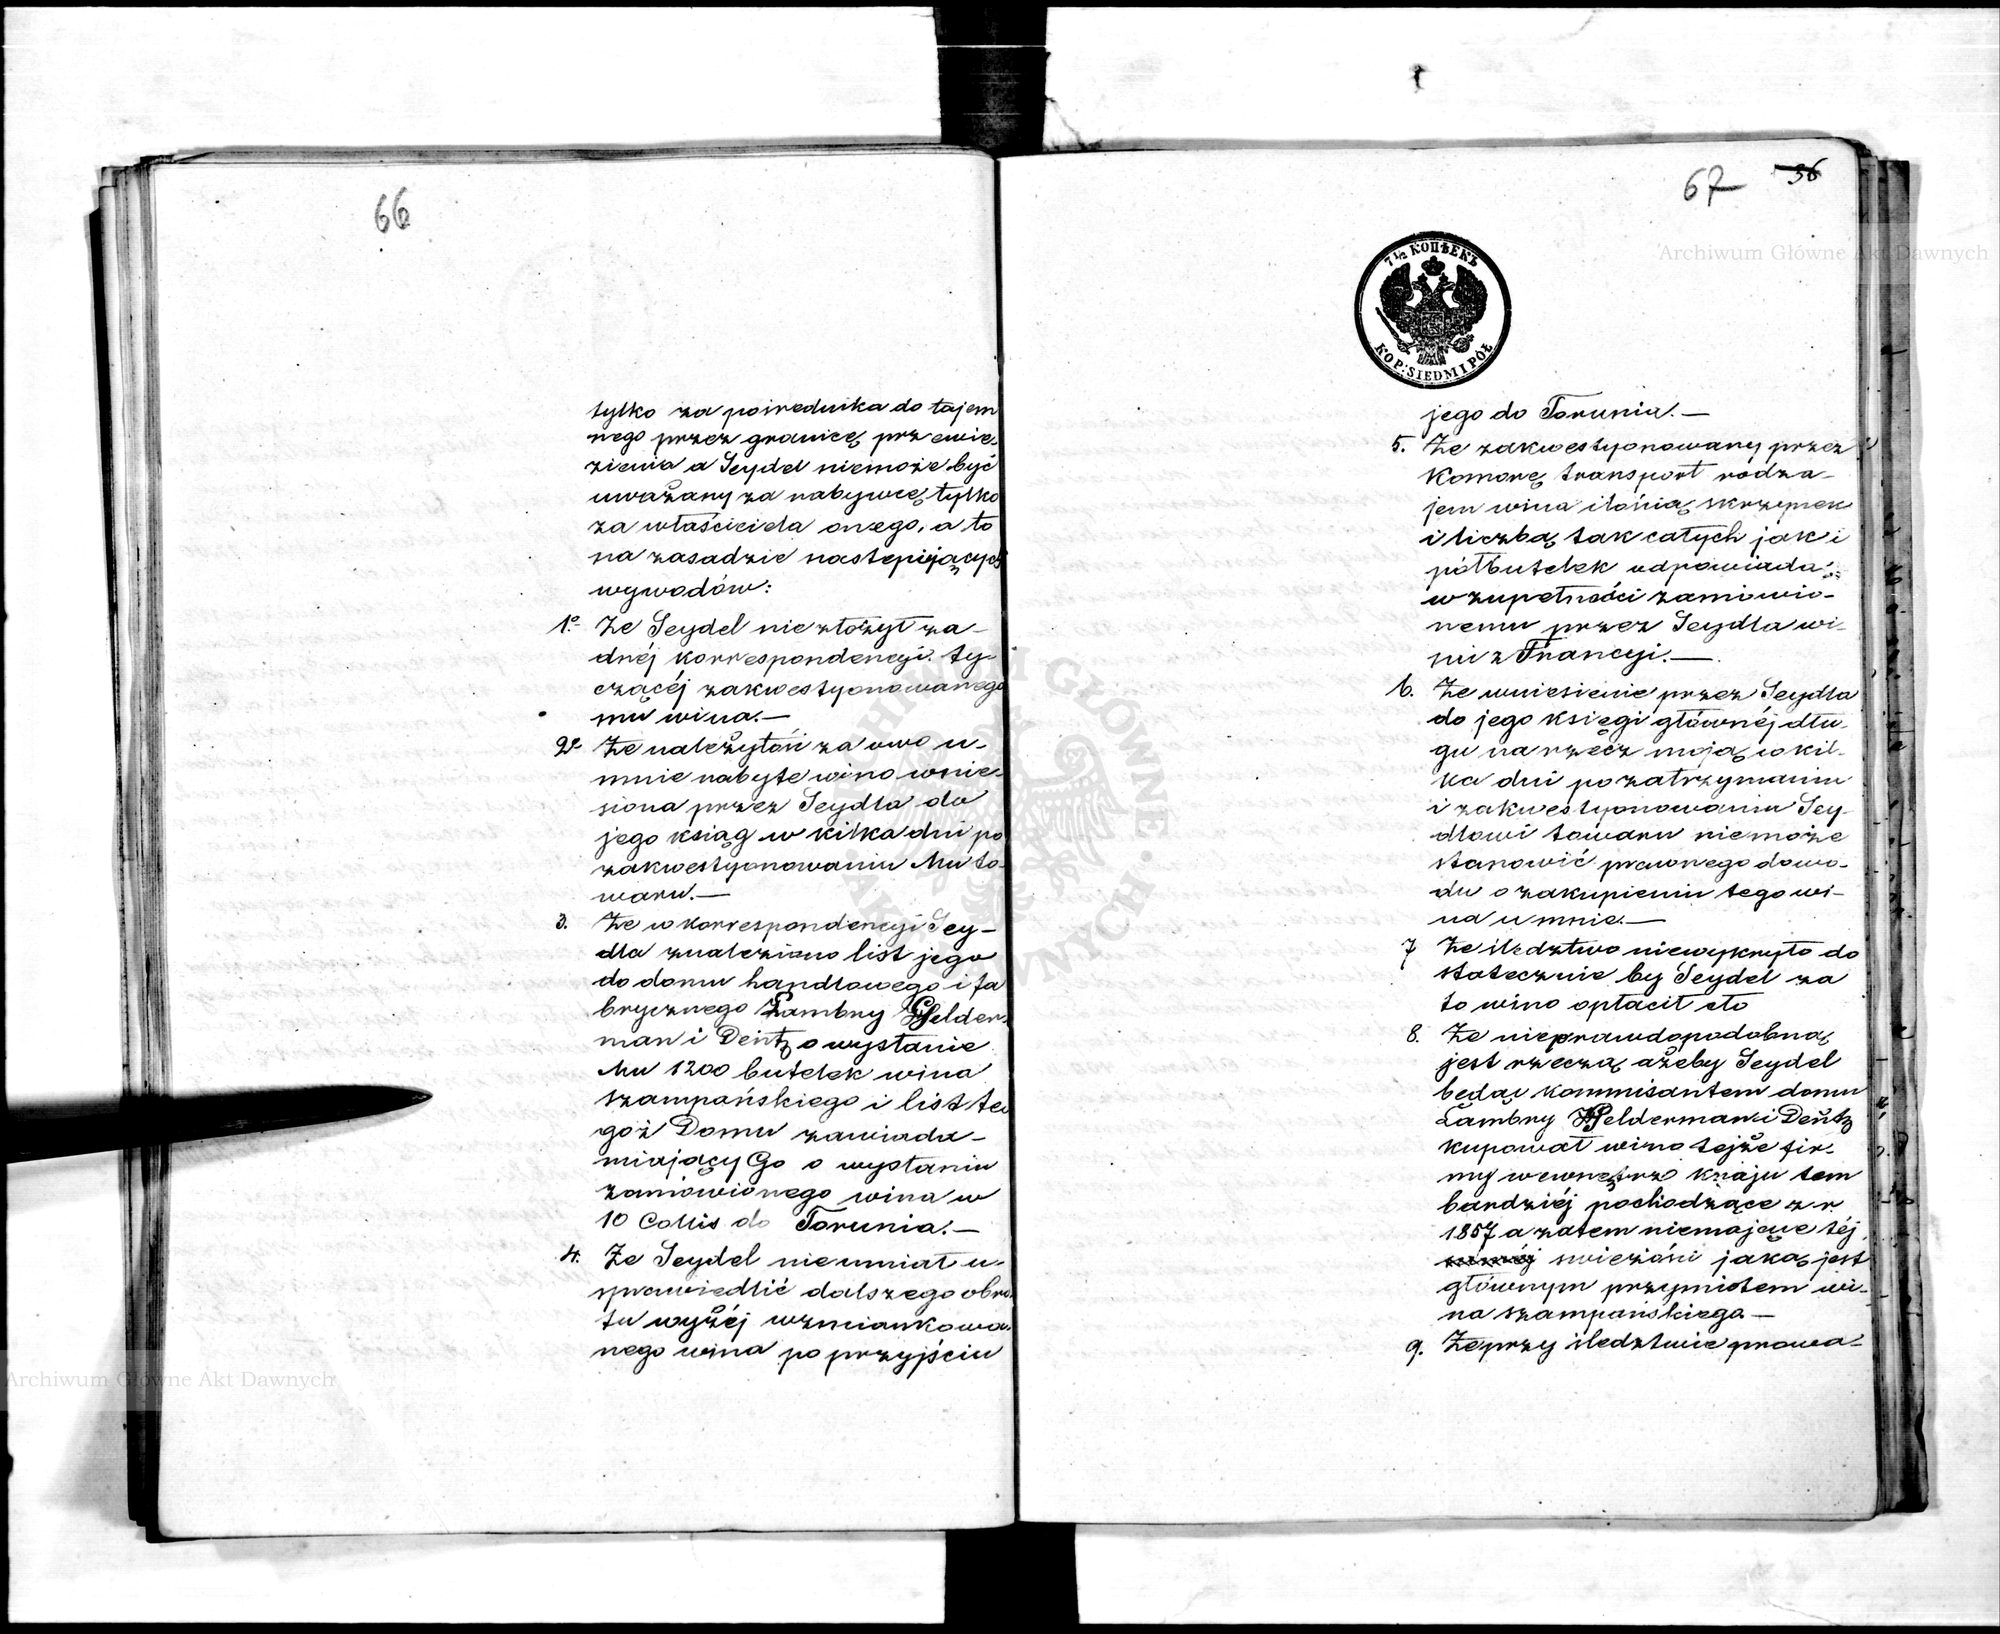 66
tylko za pośrednika do tajem
nego przez granicę przewie-
zienia a Seydel niemoże być
uważany za nabywcę tylko
za właściciela onego, a to
na zasadzie nastepujących
wywodów:
1o Że Seydel nie złożył ża-
dnéj korrespondencyi ty-
czącéj zakwestyonowanego
mu wina.—
2o Że należytość za owo u-
mnie nabyte wino wnie-
siona przez Seydla do
jego ksiąg w kilka dni po
zakwestyonowaniu Mu to-
waru.—
3. Że w korrespondencyi Sey-
dla znaleziono list jego
do domu handlowego i fa
brycznego Lambry Gelder-
man i Deutz o wysłanie
Mu 1200 butelek wina
szampańskiego i list te
goż Domu zawiada-
miający Go o wysłaniu
zamówionego wina w
10 Collis do Torunia.—
4. Że Seydel nieumiał u-
sprawiedlić dalszego obro-
tu wyżéj wzmiankowa-
nego wina po przyjściu
67 36
7½ КОПѢЕКЪ
KOP: SIEDM I PÓŁ
jego do Torunia.—
5. Że zakwestyonowany przez
Komorę transport rodza-
jem wina ilością skrzynek
i liczbą tak całych jak i
półbutelek odpowiada
w zupełności zamówio-
nemu przez Seydla wi-
nu z Francyi.—
6. Że wniesienie przez Seydla
do jego księgi głównéj dłu-
gu na rzecz moją w kil-
ka dni po zatrzymaniu
i zakwestyonowaniu Sey-
dlowi towaru niemoże
stanowić prawnego dowo-
du o zakupieniu tego wi-
na u mnie.—
7 Że śledztwo niewykryło do
statecznie by Seydel za
to wino opłacił cło
8. Że nieprawdopodobną
jest rzeczą ażeby Seydel
będąc kommisantem domu
Lambry Gelderman i Deutz
kupował wino tejże fir-
my wewnętrz kraju tem
bardziéj pochodzące z r
1857 a zatem niemające téj
świeżości jaką jest
głównym przymiotem wi-
na szampańskiego.—
9. Że przy śledztwie prowa-
Archiwum Główne Akt Dawnych
Archiwum Główne Akt Dawnych
ARCHIWUM GŁÓWNE AKT DAWNYCH